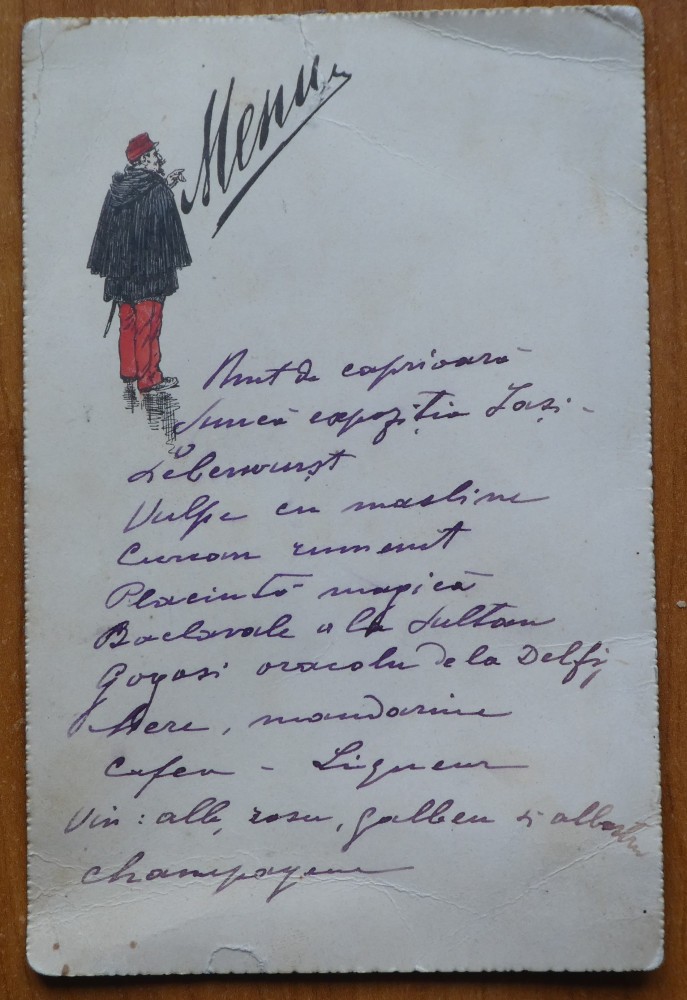 Menu
Unt de caprioară
Suncă expoziția Iași -
Leberwurșt
Vulpe cu masline
Curcan rumenit
Placintă magică
Baclavale a la Sultan
Gogasi oracolu de la Delfi
Mere, mandarine
Cafea - Liqueur
Vin: alb, rosu, galben si albastru
champagne